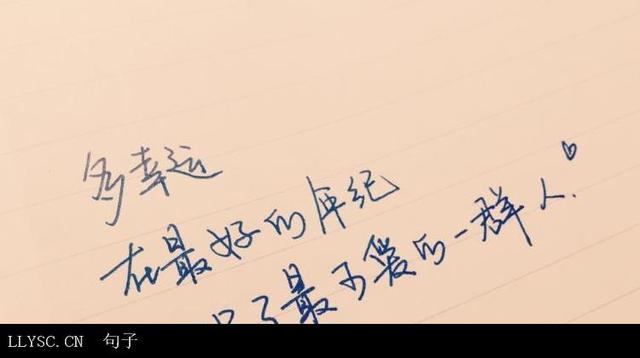 多幸运
在最好的年纪
了最可爱的一群人.
LLYSC.CN 句子